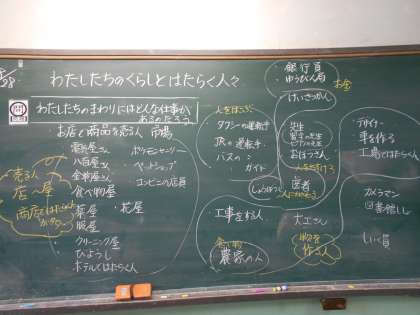 わたしたちのくらしとはたらく人々
わたしたちのまわりにはどんな仕事が
あるのだろう
お店で商品を売る人 市場
八百屋さん
金物屋さん
食べ物屋
薬屋
服屋
花屋
クリーニング屋
びようし
ホテルではたらく人
ペットショップ
コンビニの店員
売る人
店〜屋
人をはこぶ
タクシーの運転手
JRの運転手
バスの〃
ガイド
しょうぼうし
工事をする人
食べ物
農家の人
・銀行員
・ゆうびん局
お金
けいさつかん
先生
おぼうさん
医者
大工さん
物を
作る人
・デザイナー
車を作る
工場ではたらく人
カメラマン
図書館し